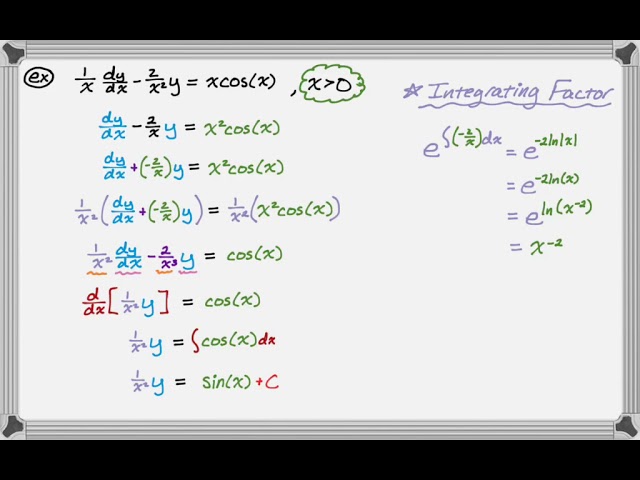 ex 1/x dy/dx - 2/x² y = x cos(x) , x>0
dy/dx - 2/x y = x² cos(x)
dy/dx + (-2/x) y = x² cos(x)
1/x² (dy/dx + (-2/x) y) = 1/x² (x² cos(x))
1/x² dy/dx - 2/x³ y = cos(x)
d/dx [1/x² y] = cos(x)
1/x² y = ∫cos(x) dx
1/x² y = sin(x) + C
☆ Integrating Factor
e^∫(-2/x)dx = e^-2ln|x|
= e^-2ln(x)
= e^ln(x^-2)
= x^-2